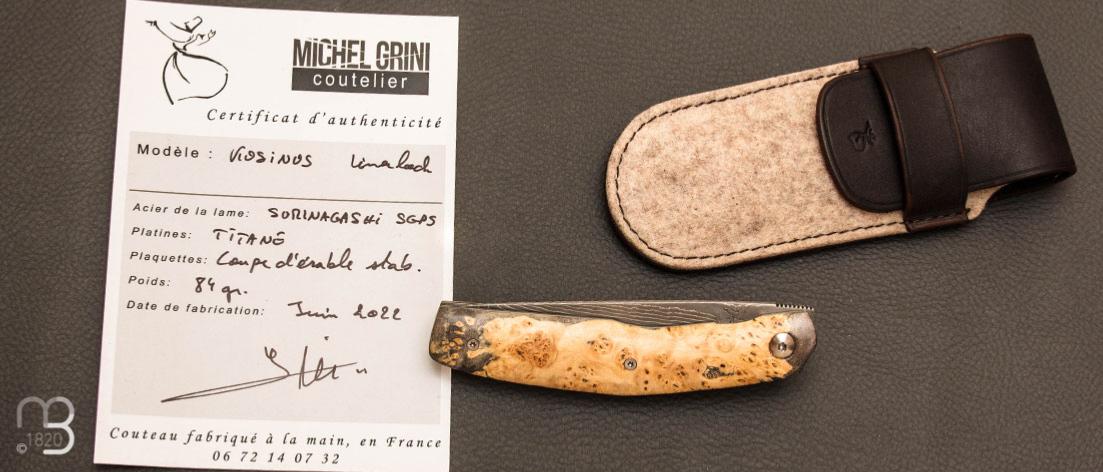 MICHEL GRINI
coutelier
Certificat d'authenticité
Modèle : VIOSINUS Linerlock
Acier de la lame: SURINAGASHI SGPS
Platines: TITANE
Plaquettes: Loupe d'érable stab.
Poids: 84 gr.
Date de fabrication: Juin 2022
Couteau fabriqué à la main, en France
06 72 14 07 32
©1820